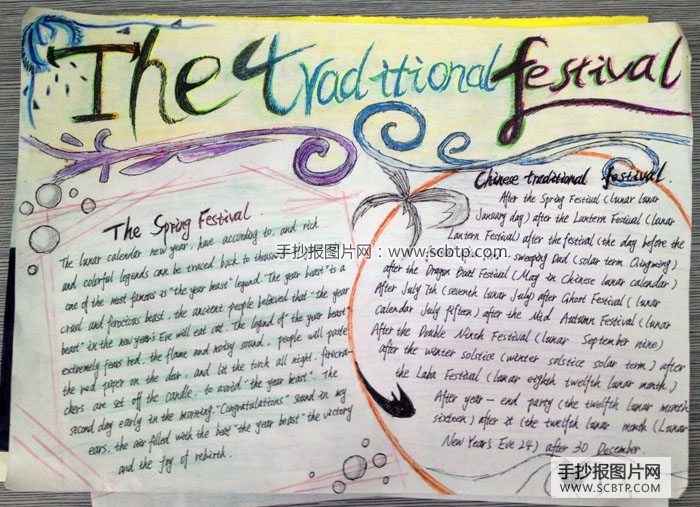 The 4 traditional festival
The Spring Festival.
The lunar calendar new year, have according to, and rich
and colorful legends can be traced back to
one of the most famous is "the year beast" legend. The year beast "is a
cruel and ferocious beast. the ancient people believed that "the year
beast" in the new year's Eve will eat out. The legend of "the year beast"
extremely fears red, the flame and noisy sound, people will paste
the red paper on the door, and lit the torch all night, firecra-
ckers are set off the candle, to avoid "the year beast". The
second day early in the morning, "Congratulations" sound in my
ears, the air filled with the beat "the year beast" the victory
and the joy of rebirth.
Chinese traditional festival.
After the Spring Festival (lunar lunar
January day) after the Lantern Festival (lunar
Lantern Festival) after the festival (the day before the
sweeping Dad (solar term Qingming)
after the Dragon Boat Festival (May in Chinese lunar calendar)
After July 7th (seventh lunar July) after Ghost Festival (lunar
Calendar July fifteen) after the Mid Autumn Festival (lunar
After the Double Ninth Festival (lunar September nine)
after the winter solstice (winter solstice solar term) after
the Laba Festival (lunar eighth twelfth lunar month)
After year-end party (the twelfth lunar month
sixteen) after it (the twelfth lunar month (Lunar
New Year's Eve 24) after 30 December.
手抄报图片网：www.scbtp.com
手抄报图片网
WWW.SCBTP.COM